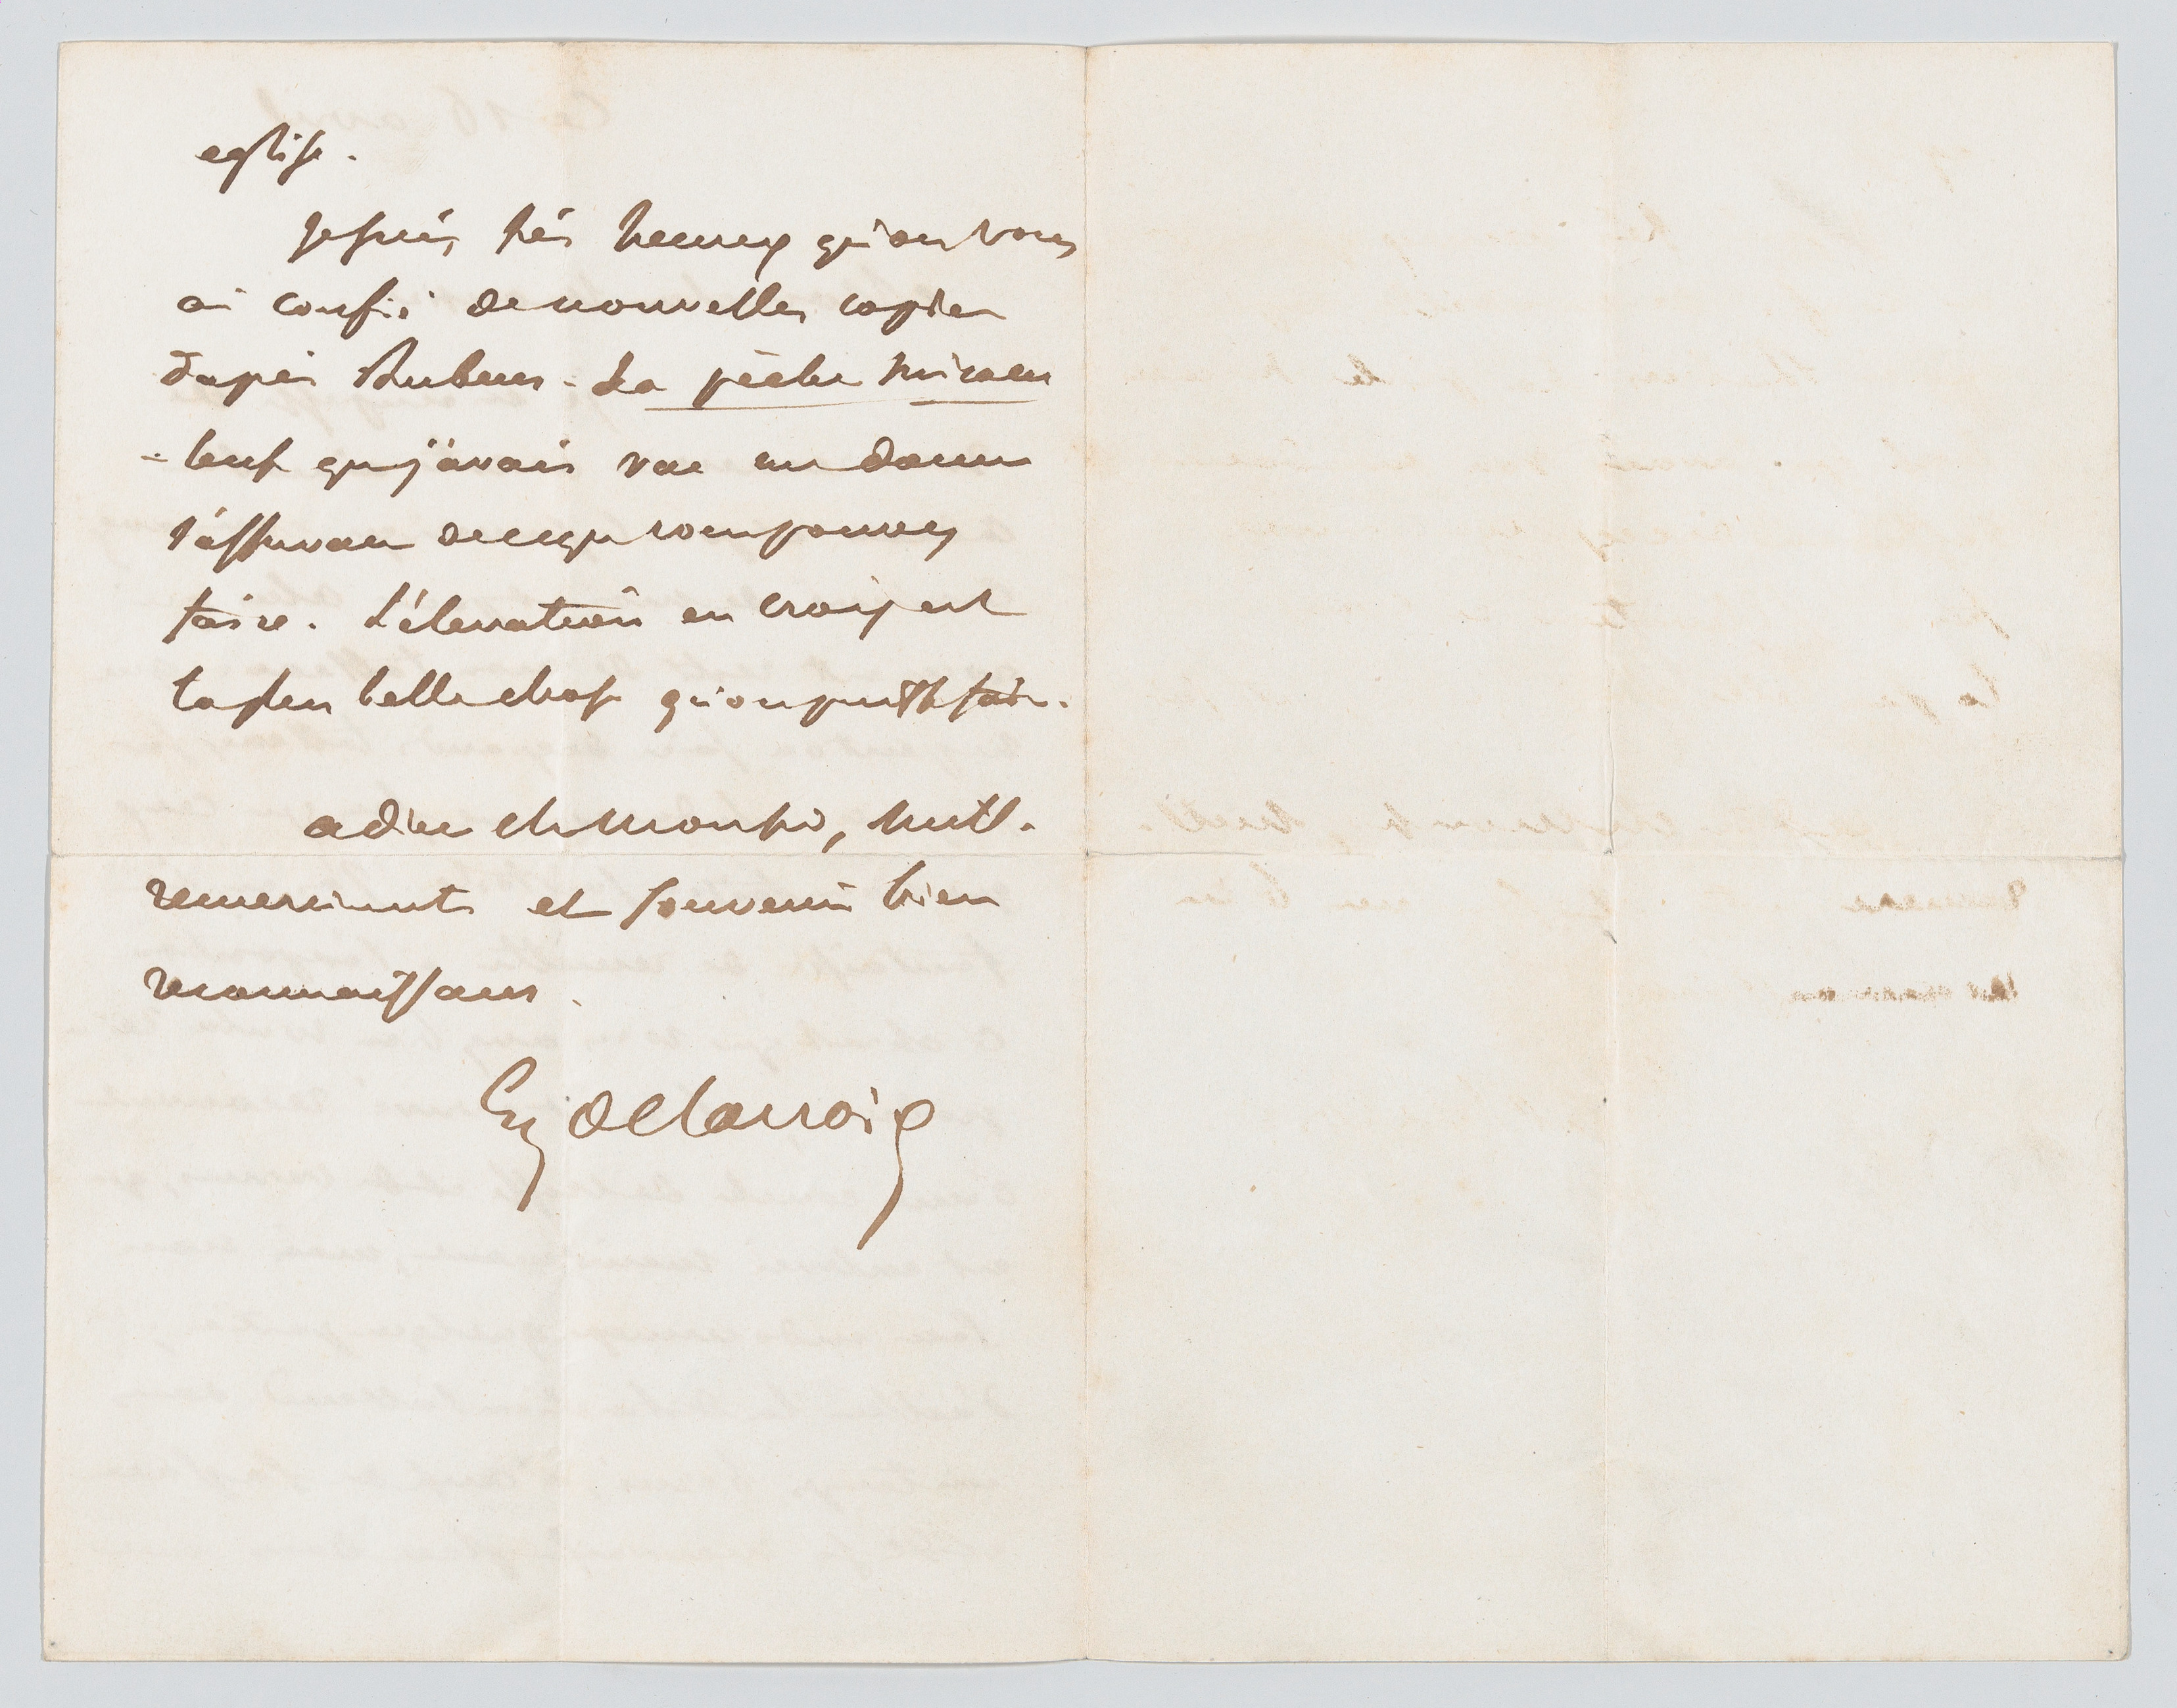 eglise.
Je suis très heureux qu'on vous
ai confié de nouvelles copies
d'après Rubens. La pêche miracu
-leuse que j'avais vue me donne
l'assurance de ce que vous pouvez
faire. L'élevation en croix est
la plus belle chose qu'on puisse faire.
adieu cher Monsieur, mille
remerciments et souvenir bien
reconnaissant.
Eug Delacroix